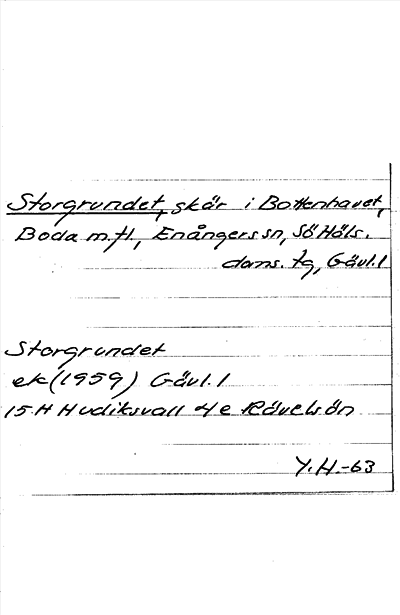 Storgrundet, skär i Bottenhavet,
Boda m.fl., Enångers sn, Sö Häls.
doms. tg, Gävl. l
Storgrundet
ek (1959) Gävl. l
15 H Hudiksvall 4 e Rävelsön
Y.H.-63